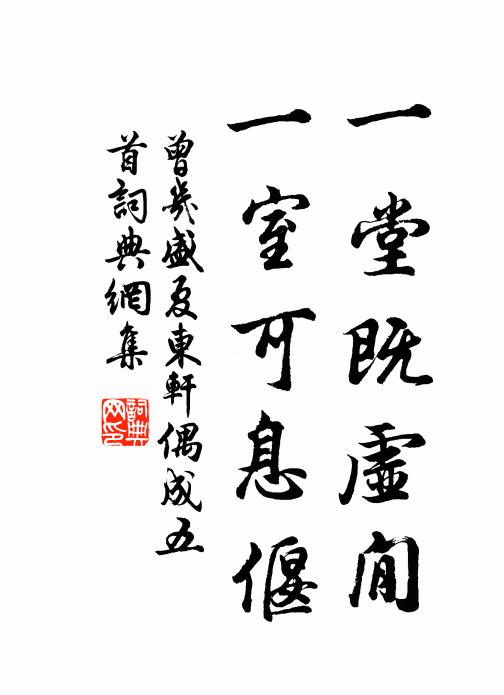 一堂既虛閒
一室可息偃
曾幾盛夏東軒偶成五
首詞典網集
詞典
网印